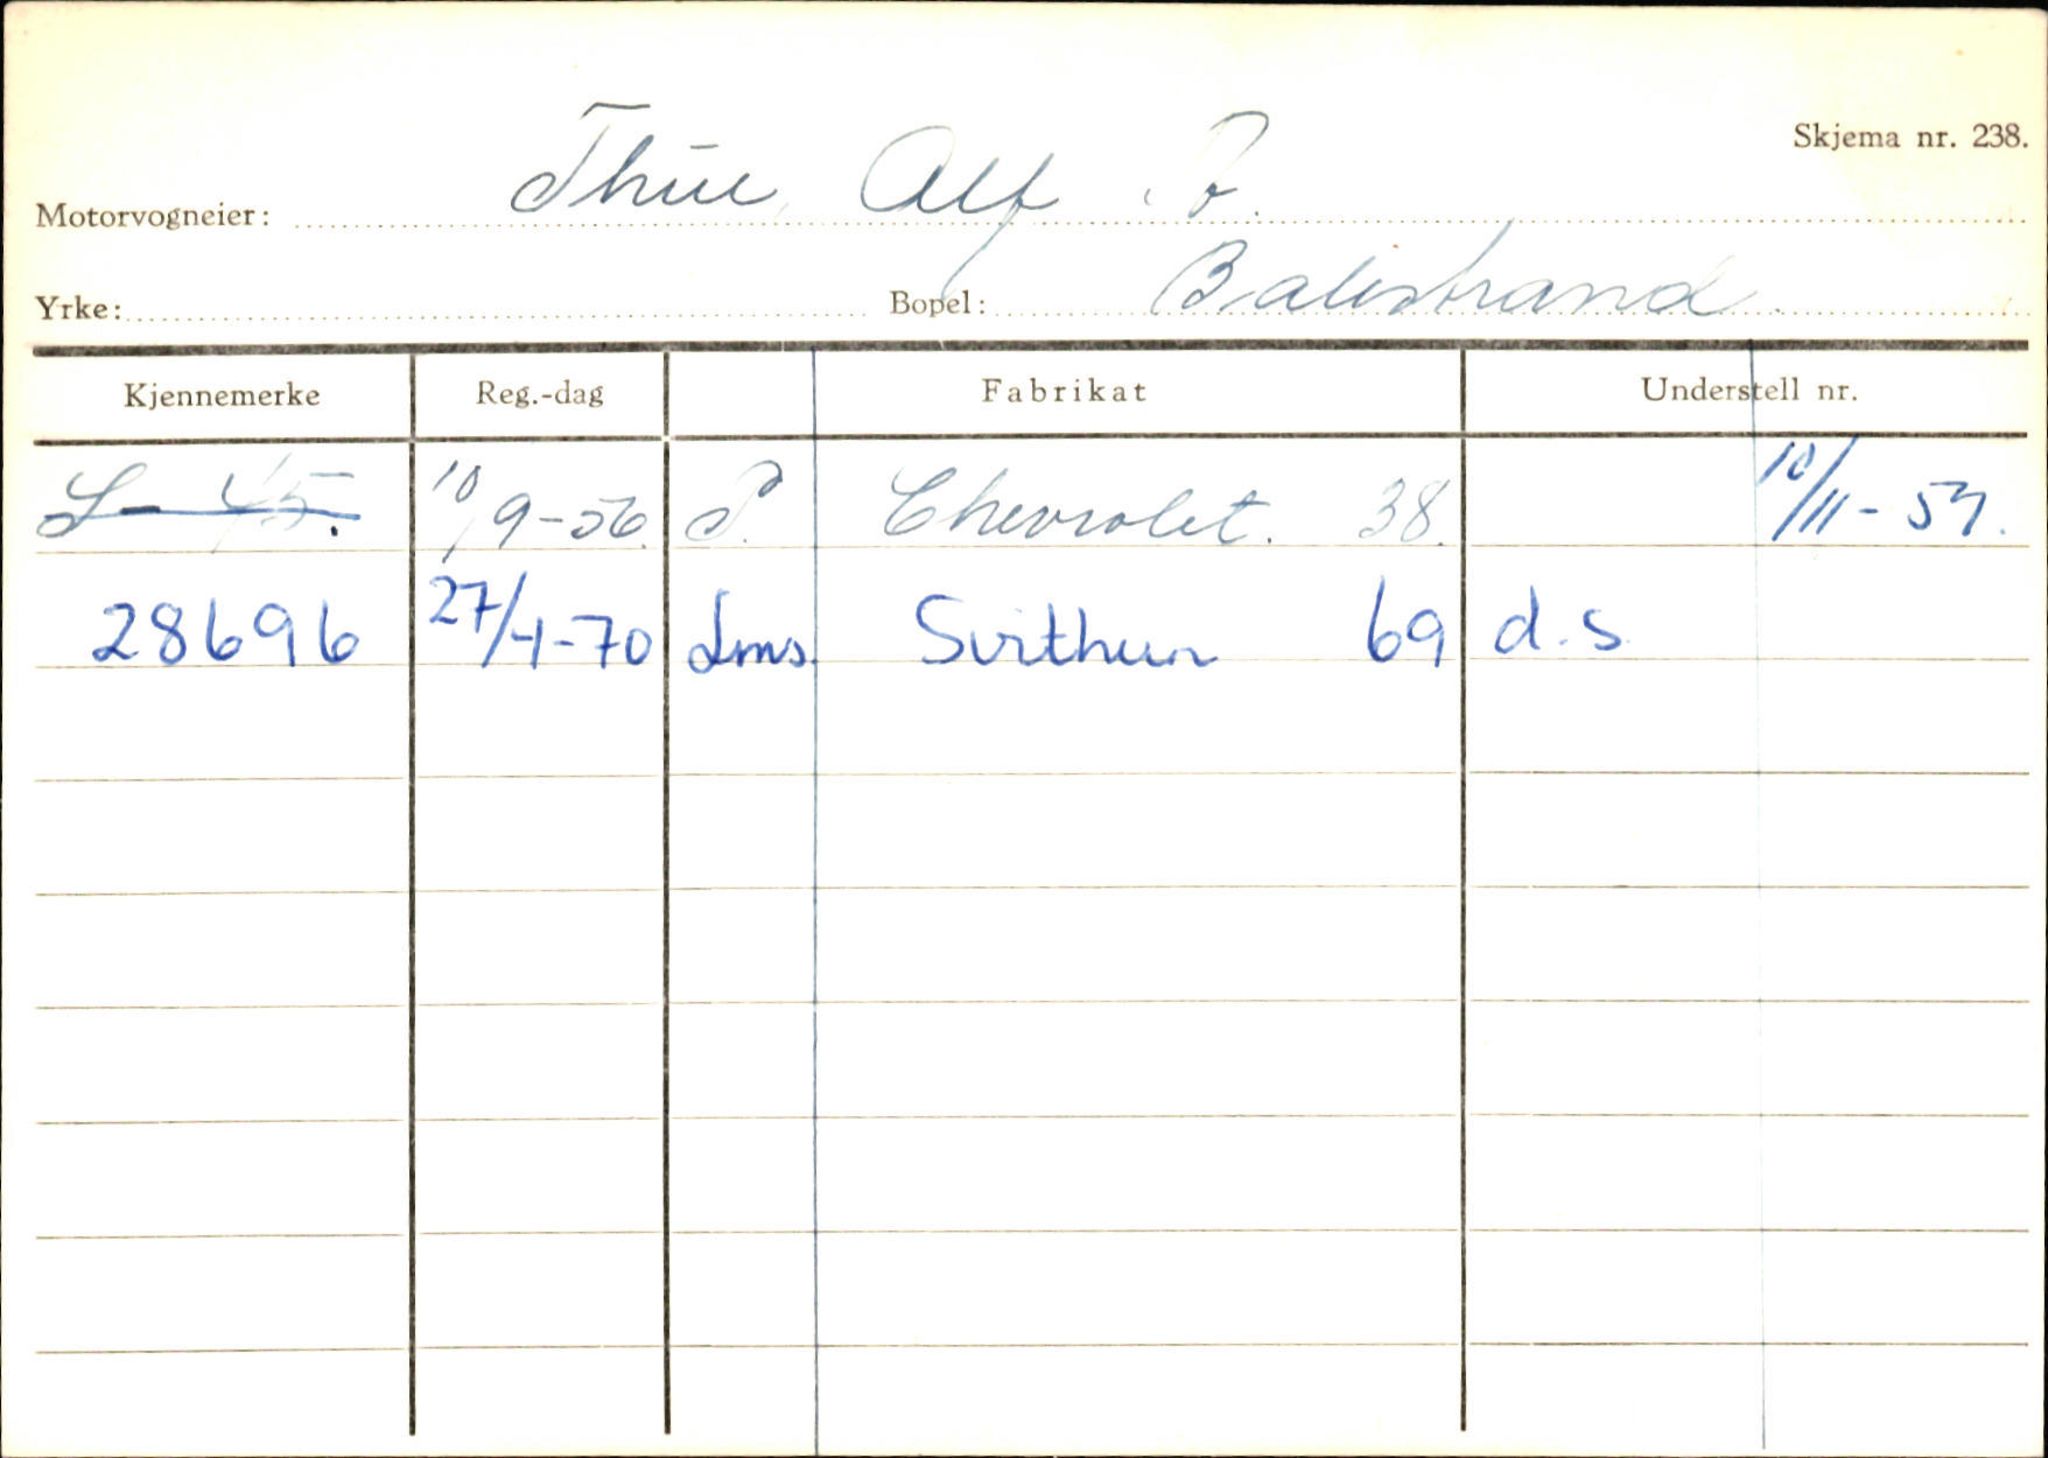 Skjema nr. 238.
Motorvogneier: Thue, Alf P.
Yrke: Bopel: Balestrand.
Kjennemerke Reg.-dag Fabrikat Understell nr.
S- 45. 10/9-56. P. Chevrolet. 38. 10/11-57.
28696 27/4-70 Lms. Svithun 69 d.s.